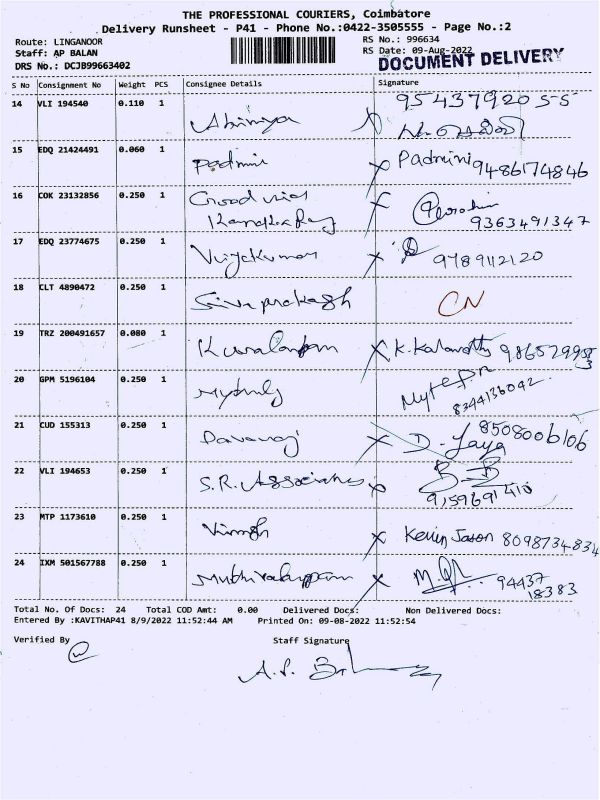 THE PROFESSIONAL COURIERS, Coimbatore
Delivery Runsheet - P41 - Phone No.:0422-3505555 - Page No.:2
Route: LINGANOOR
Staff: AP BALAN
DRS No.: DCJB99663402
RS No.: 996634
RS Date: 09-Aug-2022
DOCUMENT DELIVERY
S No Consignment No Weight PCS Consignee Details Signature
14 VLI 194540 0.110 1 Abinaya 95437920 55
15 EDQ 21424491 0.060 1 Padmini Padmini 9486174846
16 COK 23132856 0.250 1 9363491347
17 EDQ 23774675 0.250 1 Vijaykumar 9789112120
18 CLT 4890472 0.250 1 Sivaprakash CN
19 TRZ 200491657 0.080 1
20 GPM 5196104 0.250 1 8344136042
21 CUD 155313 0.250 1 D. Jaya 8508006106
22 VLI 194653 0.250 1 S.R. Associates 9159691410
23 MTP 1173610 0.250 1 Kevin Jason 8098734834
24 IXM 501567788 0.250 1 94437
18383
Total No. Of Docs: 24 Total COD Amt: 0.00 Delivered Docs: Non Delivered Docs:
Entered By :KAVITHAP41 8/9/2022 11:52:44 AM Printed On: 09-08-2022 11:52:54
Verified By Staff Signature